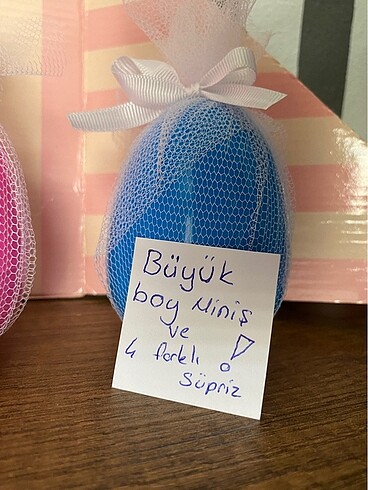 Büyük
boy Miniş
ve
4 farklı !
Süpriz